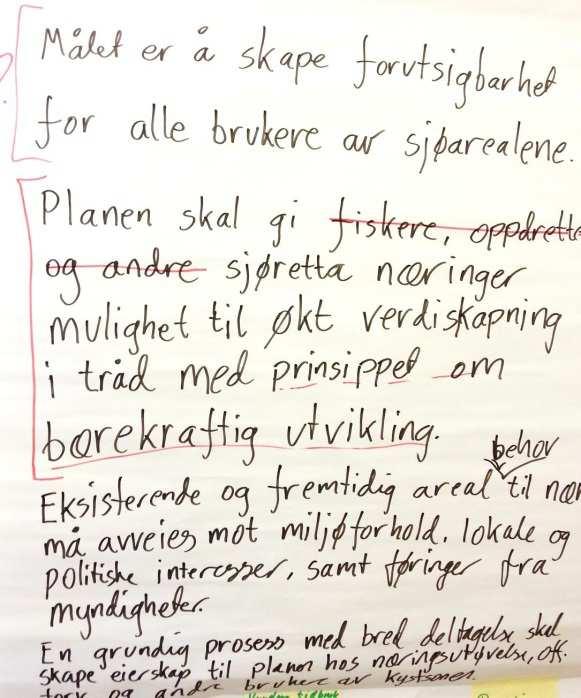 Målet er å skape forutsigbarhet
for alle brukere av sjøarealene.
Planen skal gi fiskere, oppdrette
og andre sjøretta næringer
mulighet til økt verdiskapning
i tråd med prinsippet om
bærekraftig utvikling.
behov
Eksisterende og fremtidig areal til nær
må avveies mot miljøforhold, lokale og
politiske interesser, samt føringer fra
myndigheter.
En grundig prosess med bred deltagelse skal
skape eierskap til planen hos næringsutøvelse, off.
og andre brukere av kystsonen.